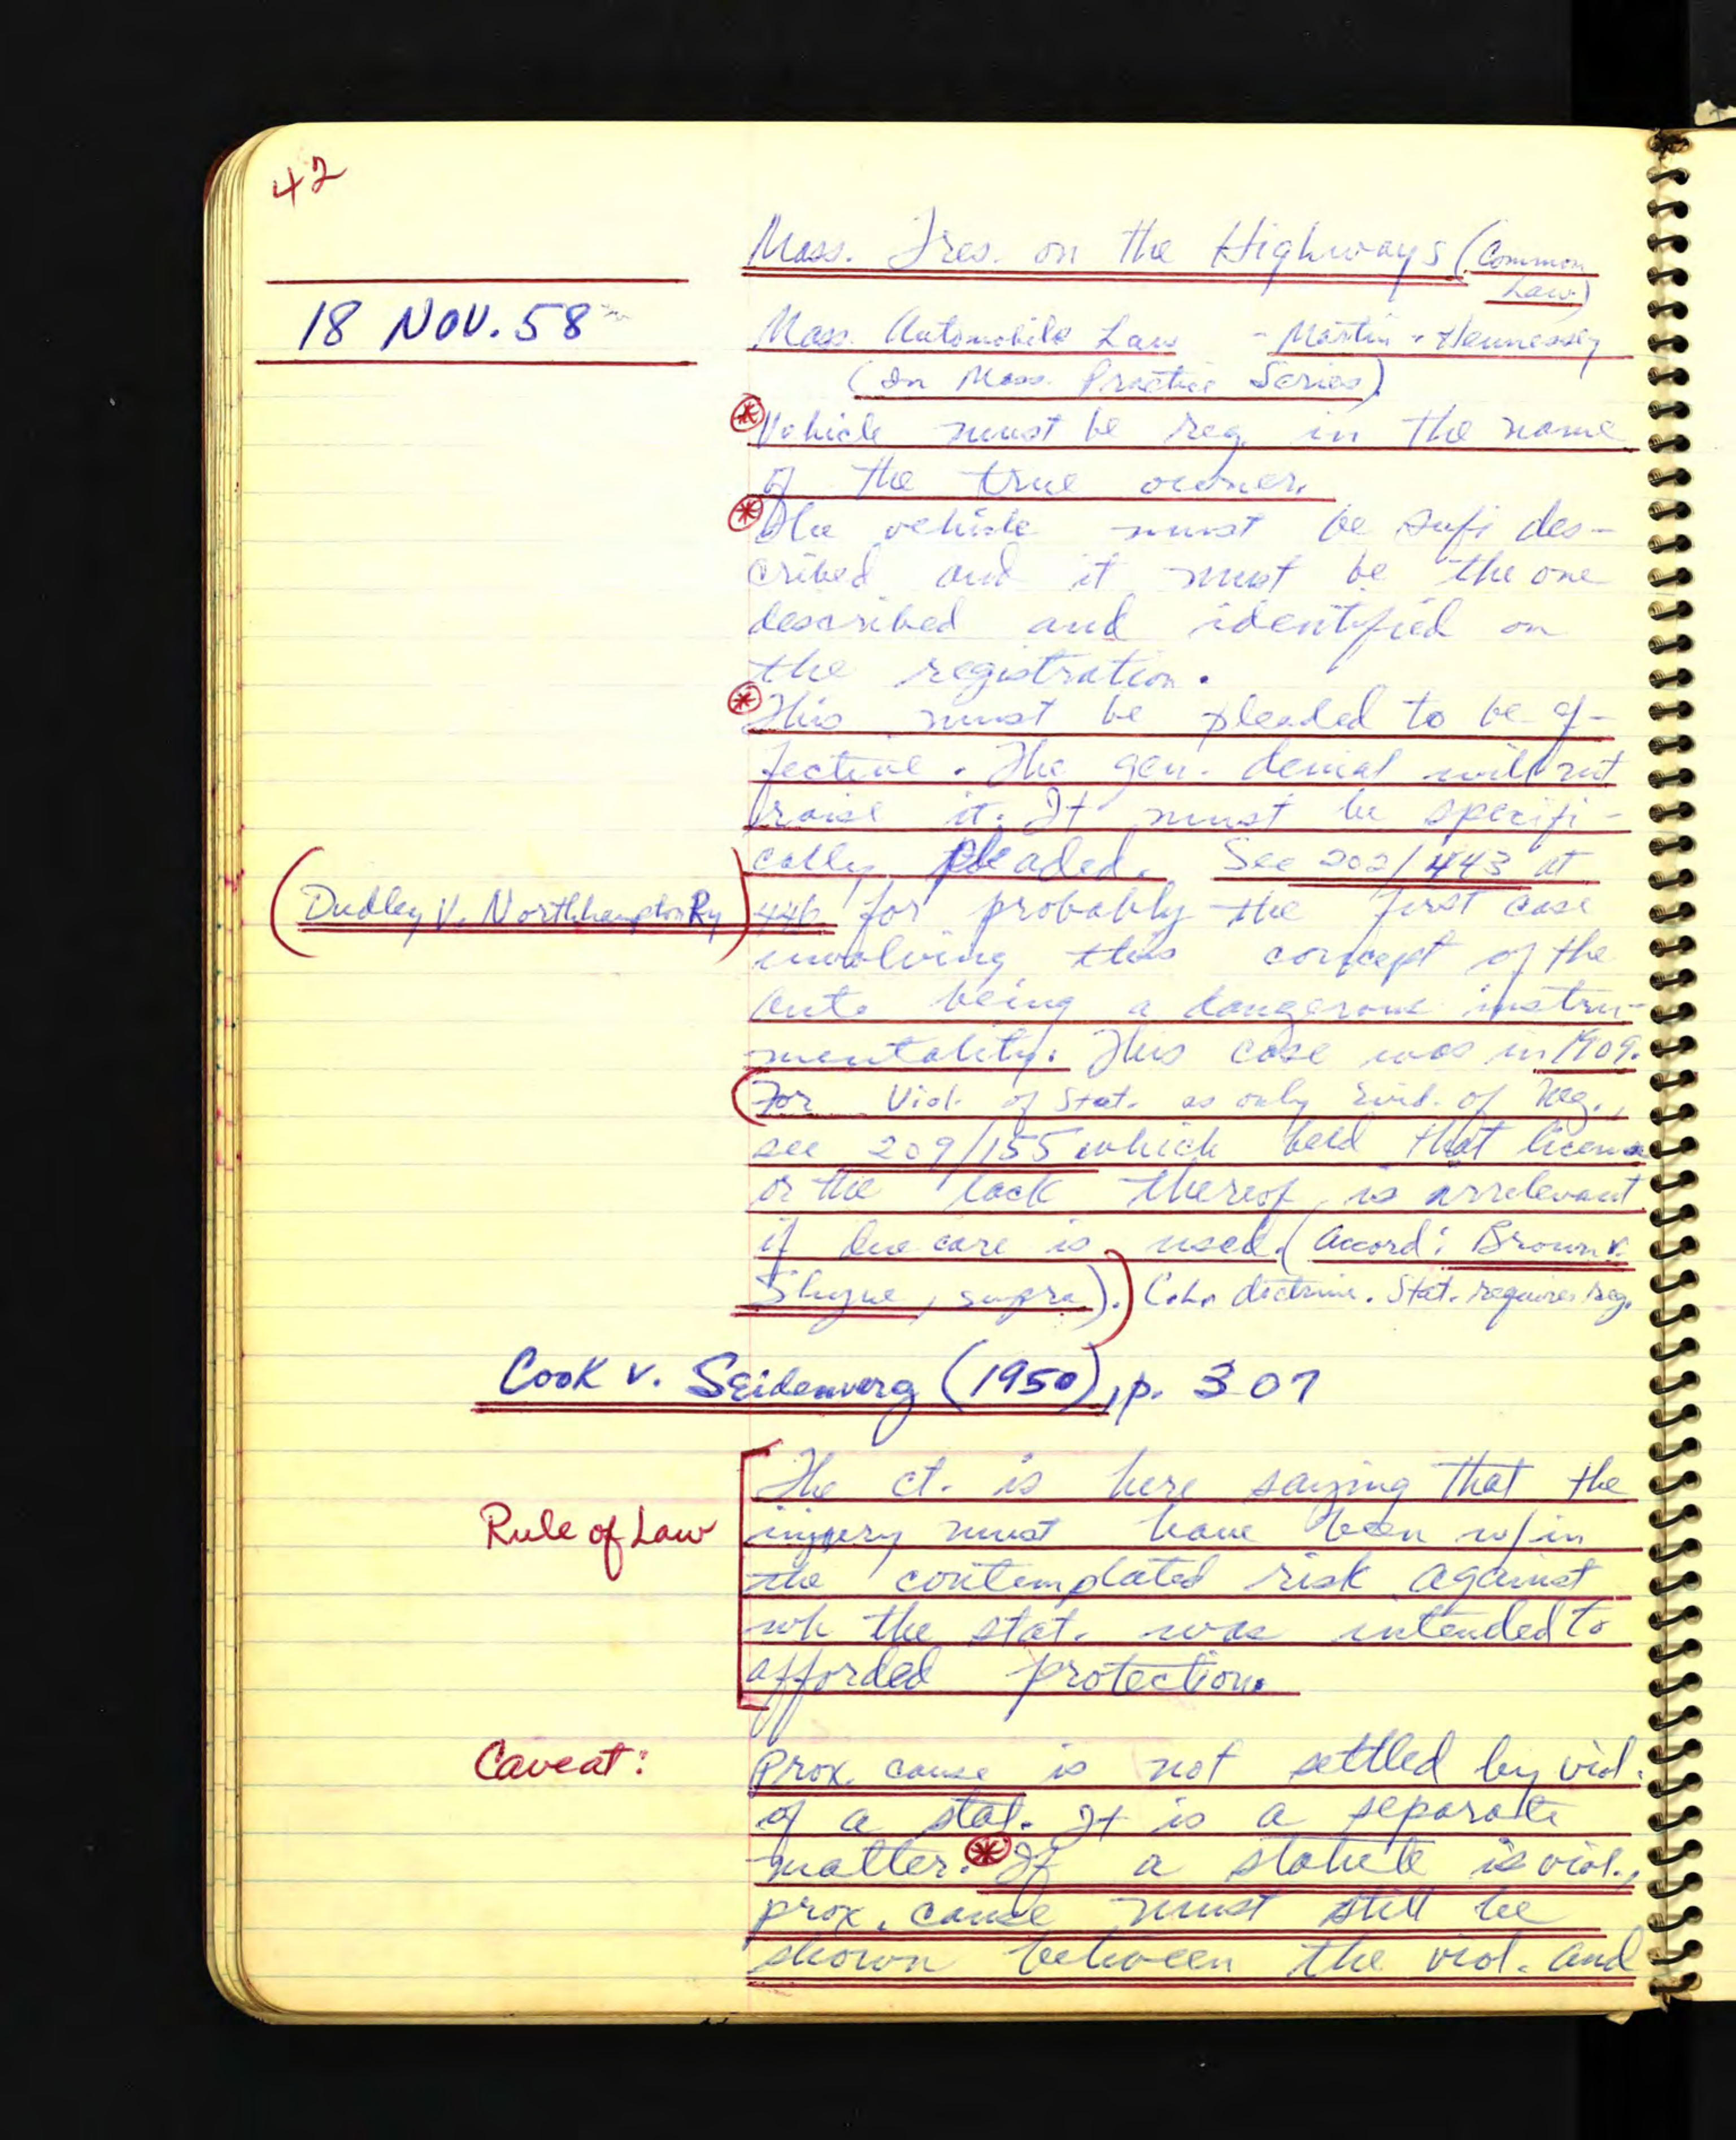 42
Mass. Tres. on the Highways (Common
Law)
18 NOV. 58
Mass. Automobile Law - Martin + Hennessey
(In Mass. Practice Series)
* Vehicle must be reg. in the name
of the true owner.
* The vehicle must be sufi des-
cribed and it must be the one
described and identified on
the registration.
* This must be pleaded to be ef-
fective. The gen. denial will not
raise it. It must be specifi-
cally pleaded. See 202/443 at
(Dudley v. Northhampton Ry) 446 for probably the first case
involving this concept of the
auto being a dangerous instru-
mentality. This case was in 1909.
(For Viol. of Stat. as only Evid. of Neg.,
see 209/155 which held that license
or the lack thereof, is irrelevant
if due care is used (Accord: Brown v.
Shyne, supra).) C.L. doctrine. Stat. requires reg.
Cook v. Seidenverg (1950), p. 307
The ct. is here saying that the
Rule of Law injury must have been w/in
the contemplated risk against
wh the stat. was intended to
afforded protection.
Caveat: Prox. cause is not settled by viol.
of a stat. It is a separate
matter. * If a statute is viol.,
prox. cause must still be
shown between the viol. and